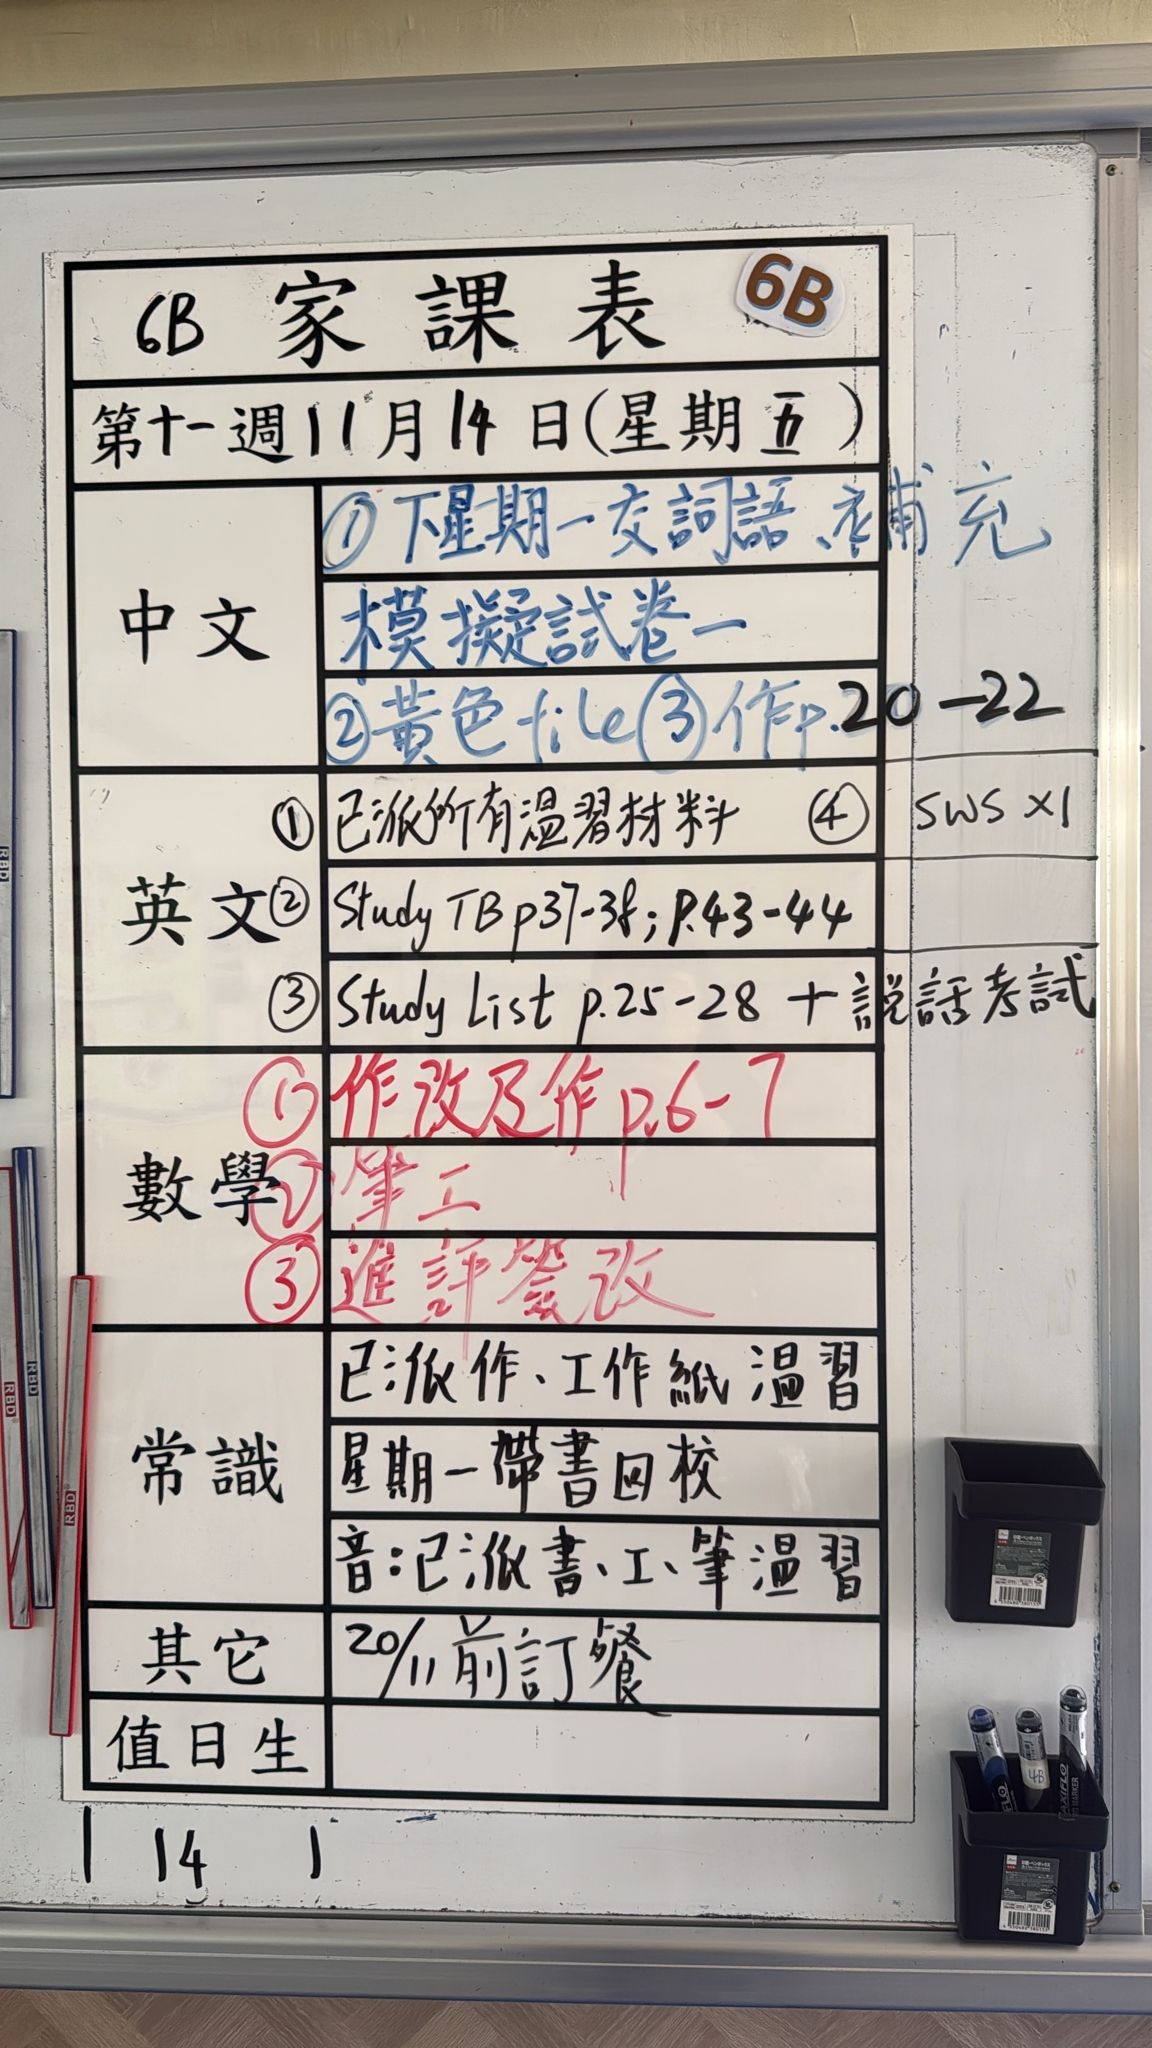 6B 家課表 6B
第十一週11月14日(星期五)
中文
①下星期一交詞語、補充
模擬試卷一
②黃色file③作p.20-22
英文
①已派所有溫習材料 ④ SWS×1
②Study TB p37-38; p.43-44
③Study List p.25-28 + 說話考試
數學
①作改及作p.6-7
②筆工
③進評簽改
常識
已派作、工作紙溫習
星期一帶書回校
音:已派書、工、筆溫習
其它
20/11前訂餐
值日生
1 14 1
RBD
RBD
RBD
RBD
4B
MARKER